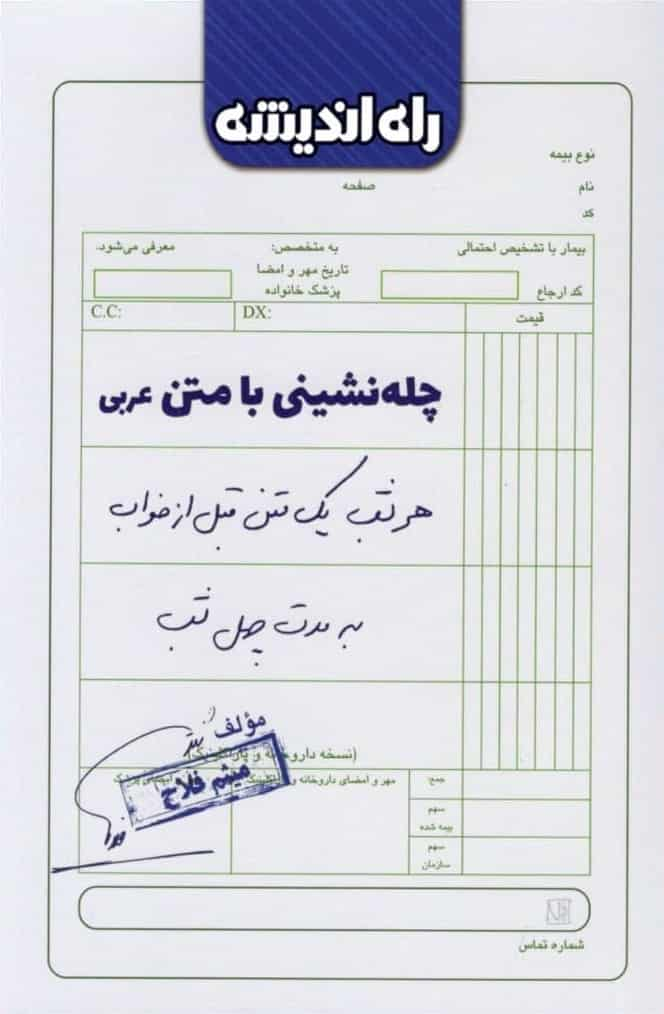 راه اندیشه
نوع بیمه
نام
صفحه
کد
بیمار با تشخیص احتمالی
به متخصص:
معرفی می‌شود.
کد ارجاع
تاریخ مهر و امضا
پزشک خانواده
C.C:
DX:
قیمت
چله‌نشینی با متن عربی
هر شب یک متن قبل از خواب
به مدت چهل شب
مؤلف
میثم فلاح
(نسخه داروخانه و پاراکلینیک)
مهر و امضای داروخانه و
جمع:
سهم
بیمه شده
سهم
سازمان
شماره تماس